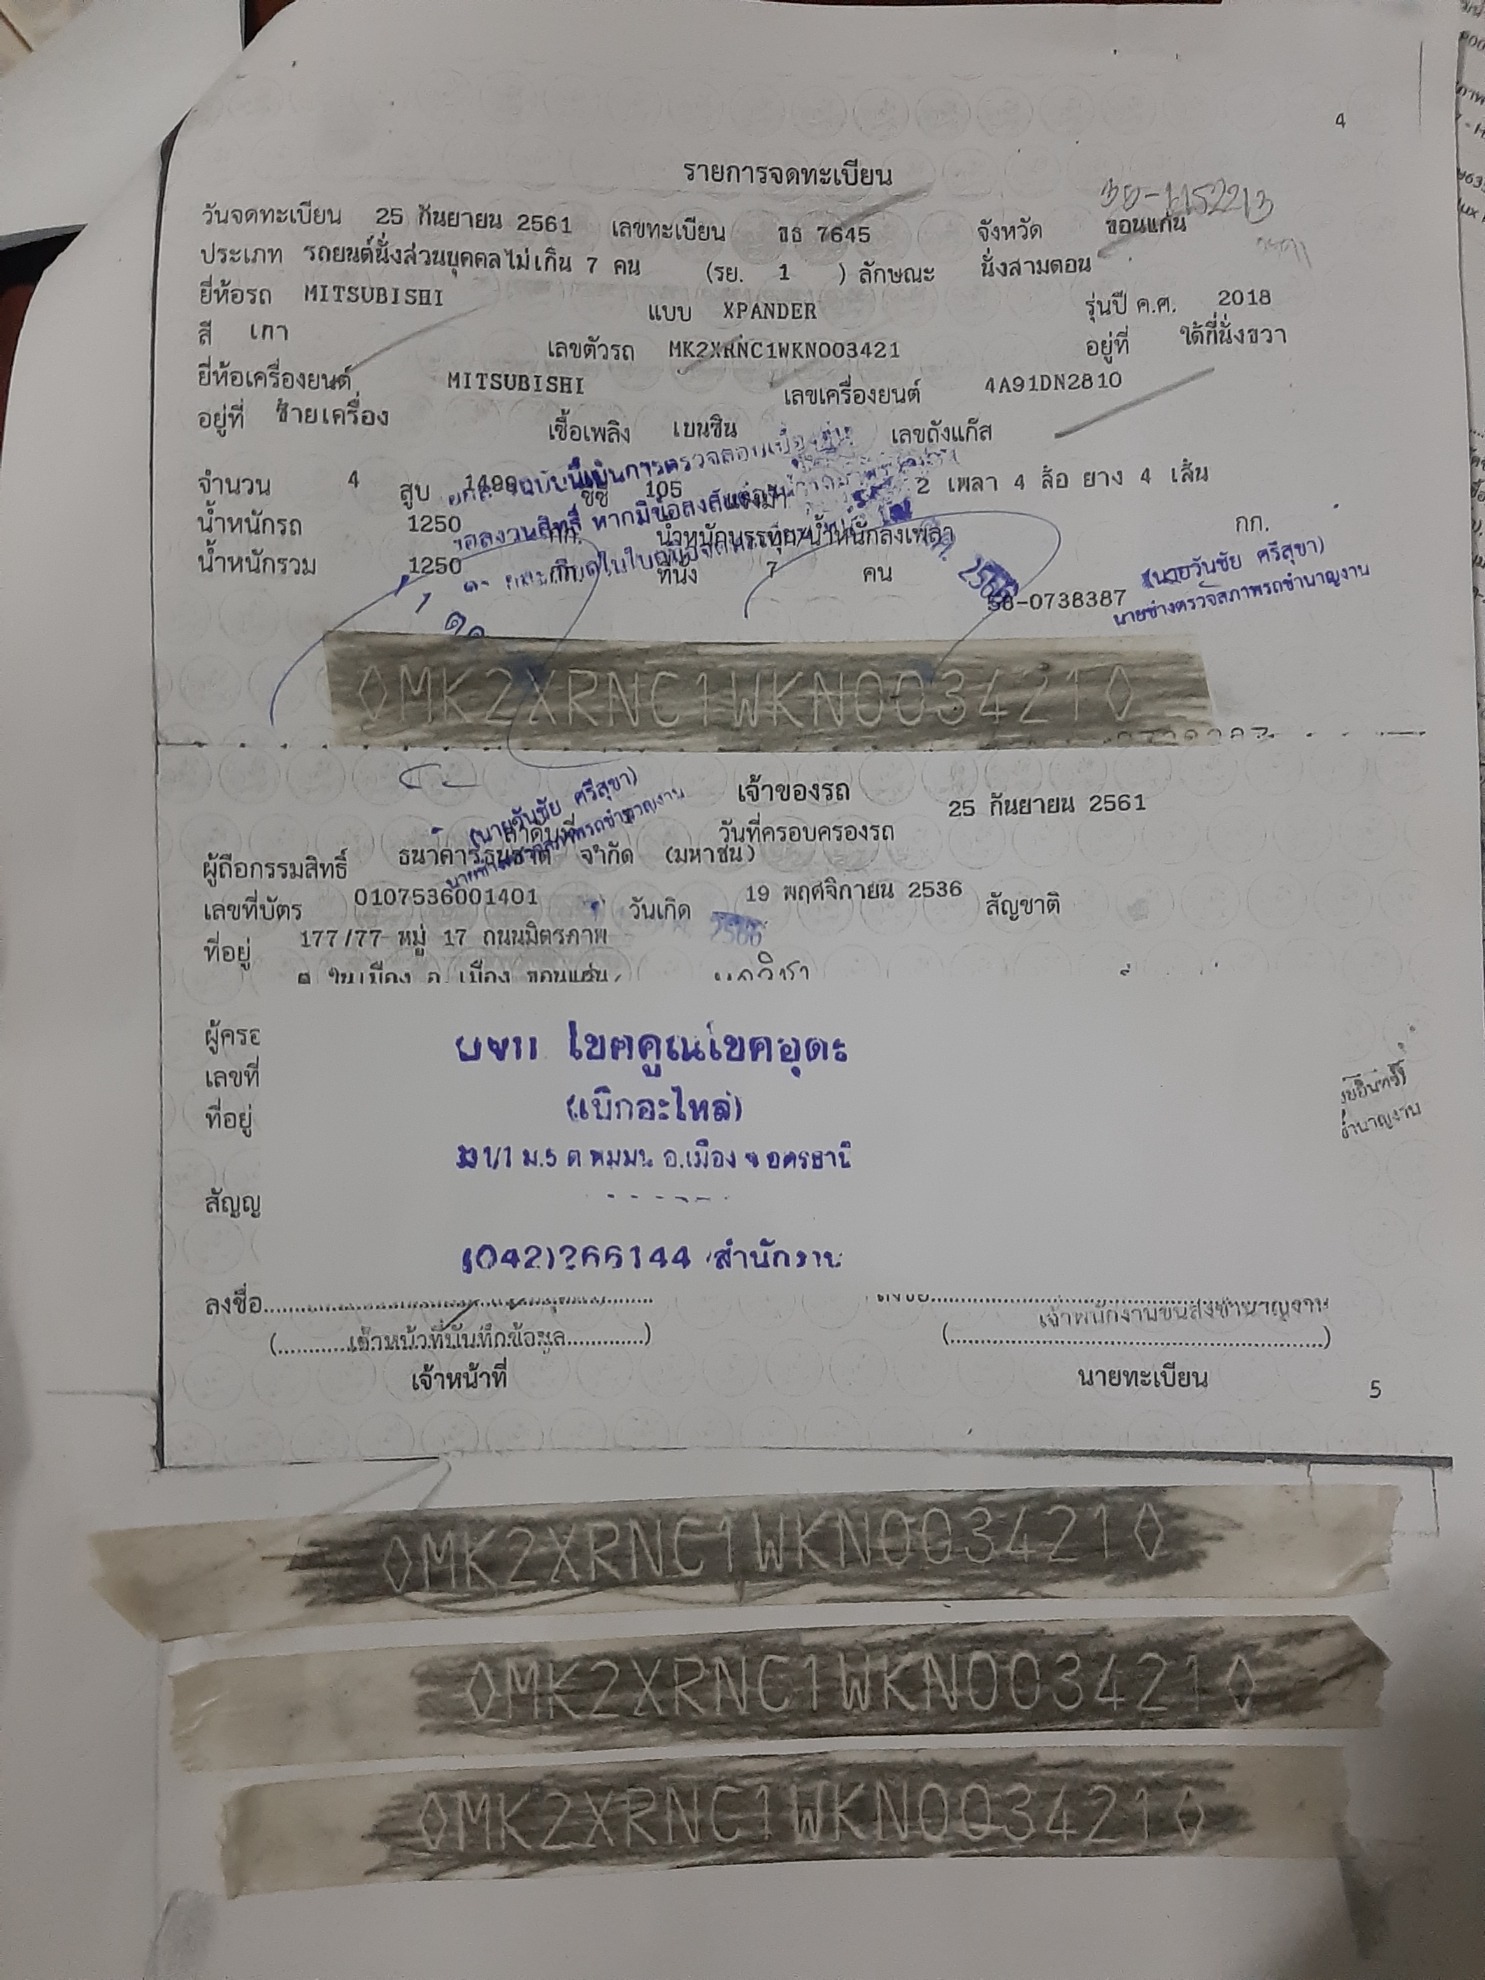 4
รายการจดทะเบียน
วันจดทะเบียน 25 กันยายน 2561 เลขทะเบียน ขธ 7645 จังหวัด ขอนแก่น
ประเภท รถยนต์นั่งส่วนบุคคลไม่เกิน 7 คน (รย. 1 ) ลักษณะ นั่งสามตอน
ยี่ห้อรถ MITSUBISHI แบบ XPANDER รุ่นปี ค.ศ. 2018
สี เทา เลขตัวรถ MK2XRNC1WKN003421 อยู่ที่ ใต้ที่นั่งขวา
ยี่ห้อเครื่องยนต์ MITSUBISHI เลขเครื่องยนต์ 4A91DN2810
อยู่ที่ ซ้ายเครื่อง เชื้อเพลิง เบนซิน เลขถังแก๊ส
จำนวน 4 สูบ 1499 ซีซี 105 แรงม้า 2 เพลา 4 ล้อ ยาง 4 เส้น
น้ำหนักรถ 1250 กก. น้ำหนักบรรทุก/น้ำหนักลงเพลา กก.
น้ำหนักรวม 1250 กก. ที่นั่ง 7 คน
(นายวันชัย ศรีสุขา)
นายช่างตรวจสภาพรถชำนาญงาน
-0738387
◊MK2XRNC1WKN003421◊
เจ้าของรถ
(นายวันชัย ศรีสุขา)
นายช่างตรวจสภาพรถชำนาญงาน
ลำดับที่ วันที่ครอบครองรถ 25 กันยายน 2561
ผู้ถือกรรมสิทธิ์ ธนาคารธนชาต จำกัด (มหาชน)
เลขที่บัตร 0107536001401 วันเกิด 19 พฤศจิกายน 2536 สัญชาติ
ที่อยู่ 177/77 หมู่ 17 ถนนมิตรภาพ
ต.ในเมือง อ.เมือง ขอนแก่น
ผู้ครอ
เลขที่
(เบิกอะไหล่)
ที่อยู่
ม.5 อ.เมือง
สัญญ
(042)266144 สำนักงาน
ลงชื่อ
(เจ้าหน้าที่บันทึกข้อมูล)
เจ้าพนักงานขนส่งชำนาญงาน
เจ้าหน้าที่ นายทะเบียน
5
◊MK2XRNC1WKN003421◊
◊MK2XRNC1WKN003421◊
◊MK2XRNC1WKN003421◊